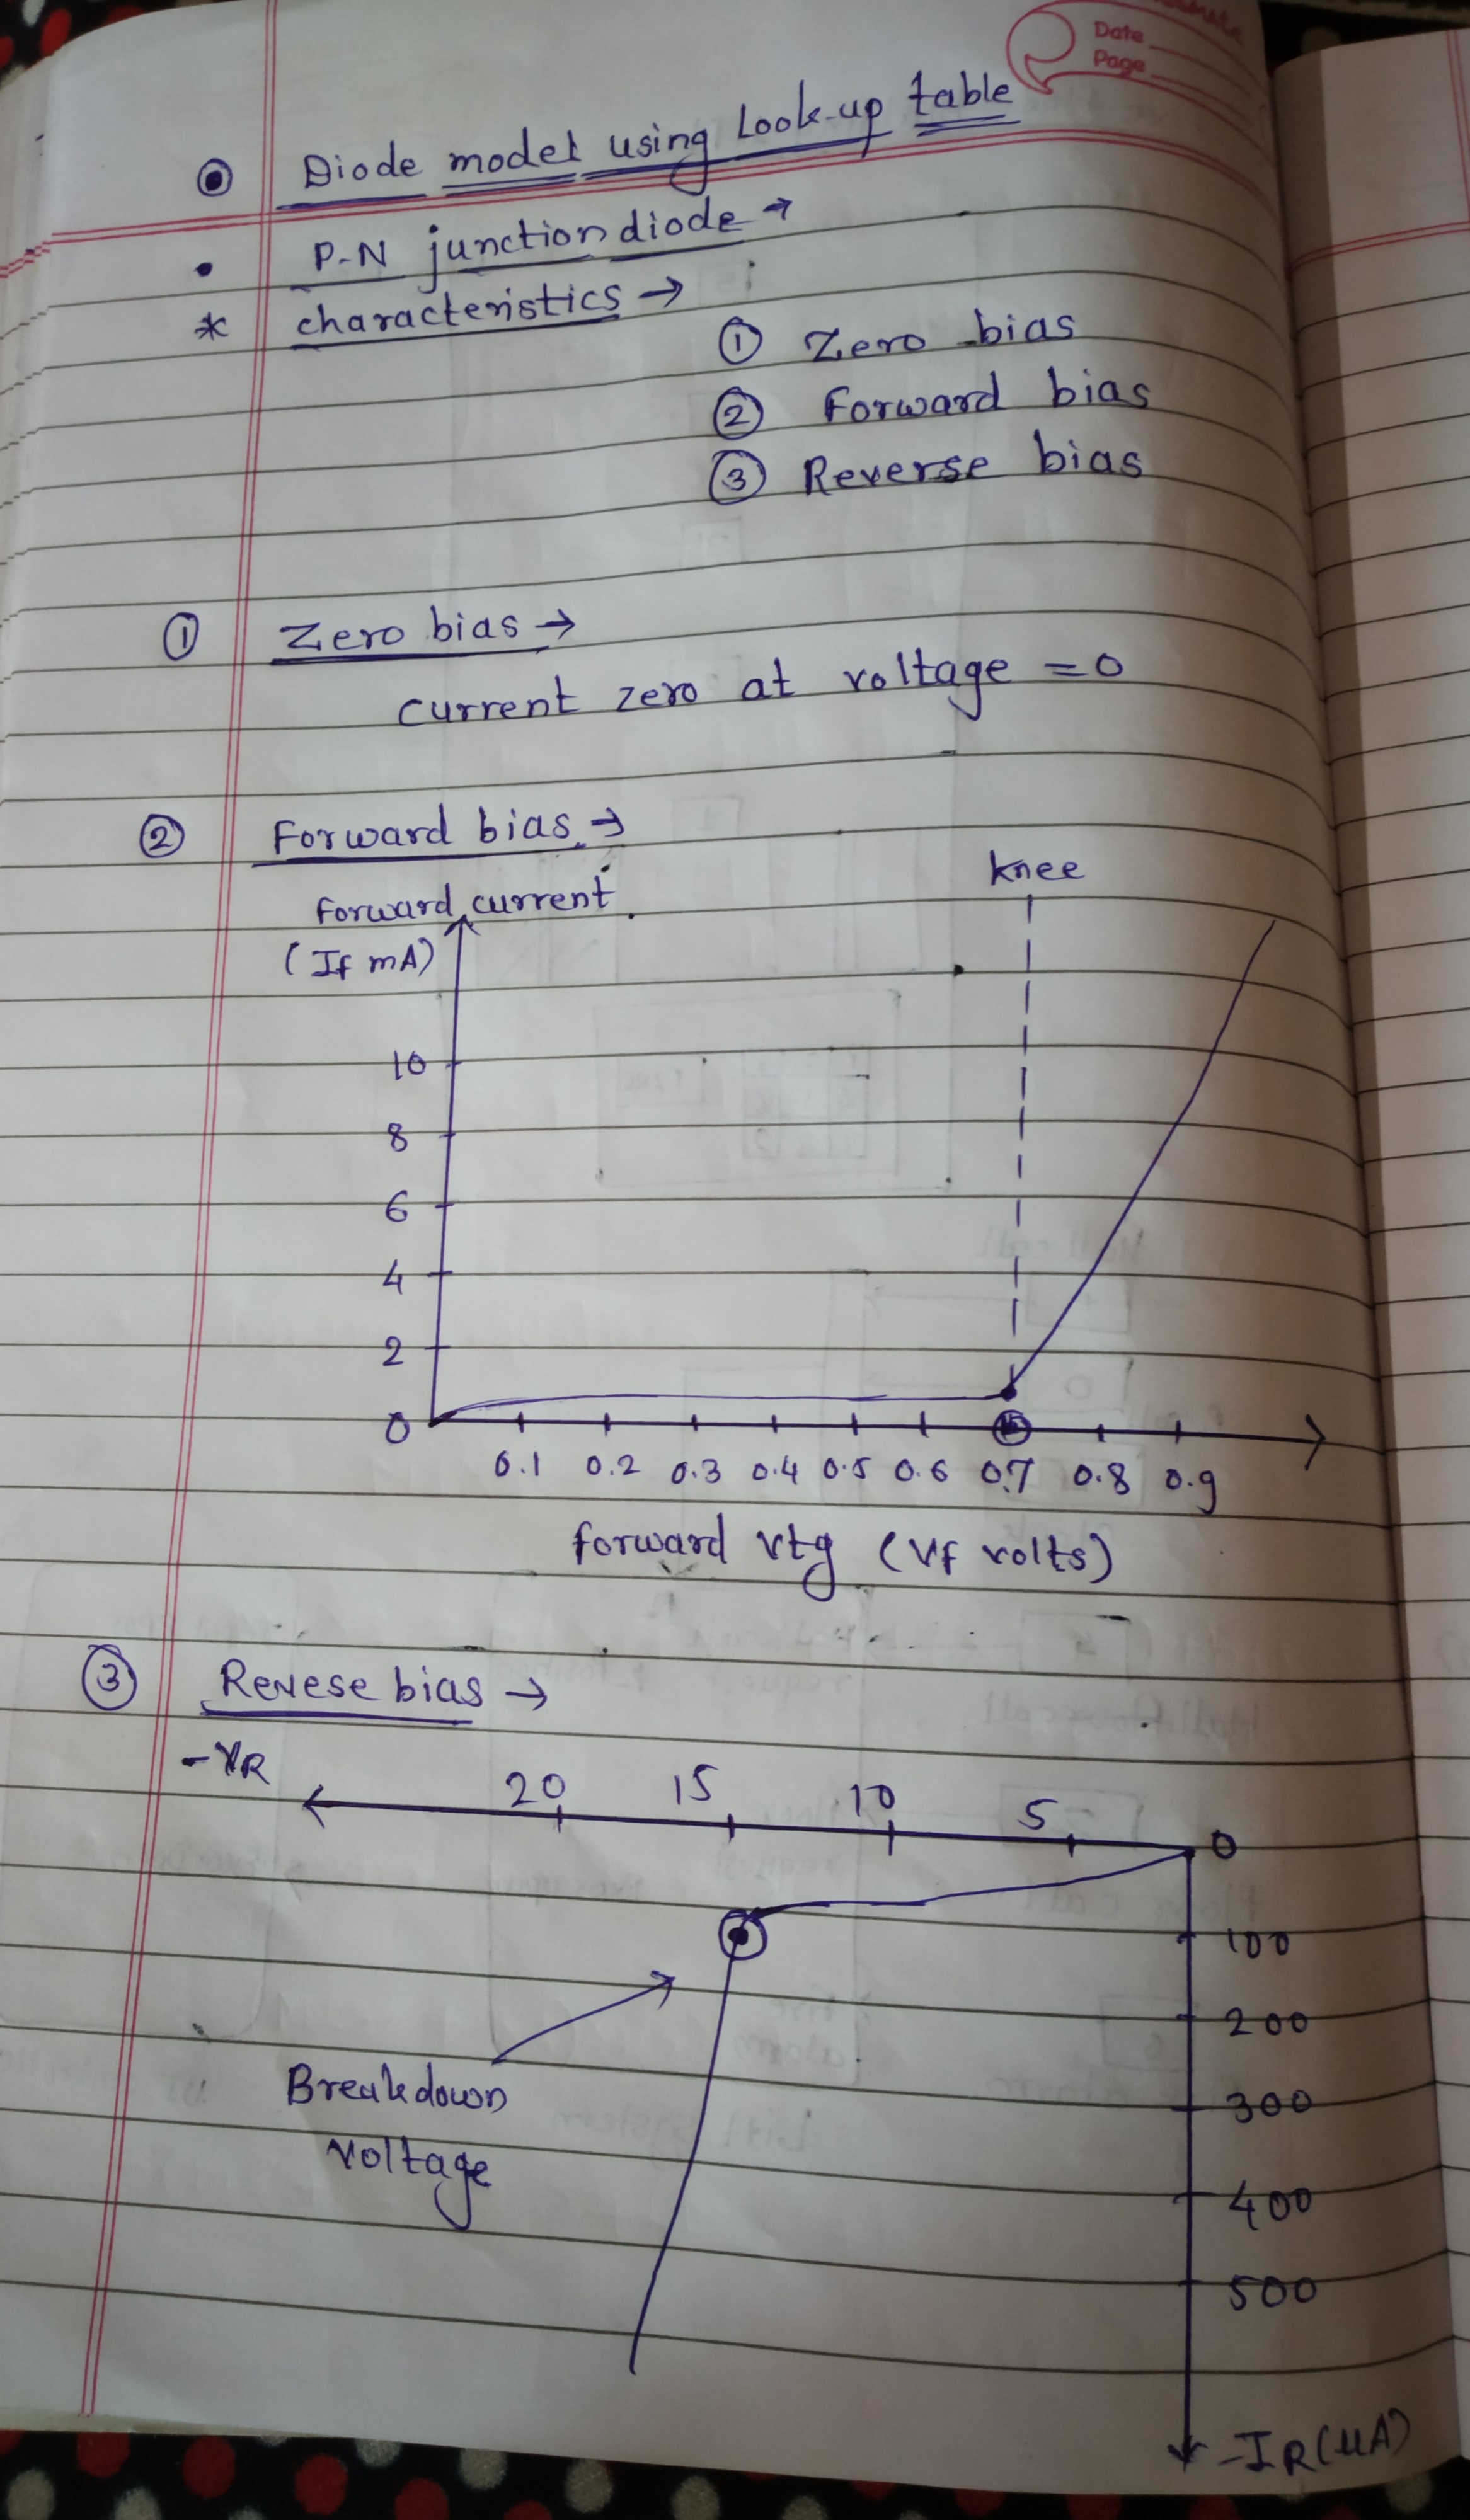 Date
Page
Diode model using Look-up table
• P-N junction diode →
* characteristics →
① Zero bias
② Forward bias
③ Reverse bias
① Zero bias →
current zero at voltage = 0
② Forward bias →
knee
forward current
(If mA)
10
8
6
4
2
0
0.1 0.2 0.3 0.4 0.5 0.6 0.7 0.8 0.9
forward vtg (Vf volts)
③ Revese bias →
-VR
20 15 10 5 0
100
200
Breakdown
300
voltage
400
500
-IR (μA)